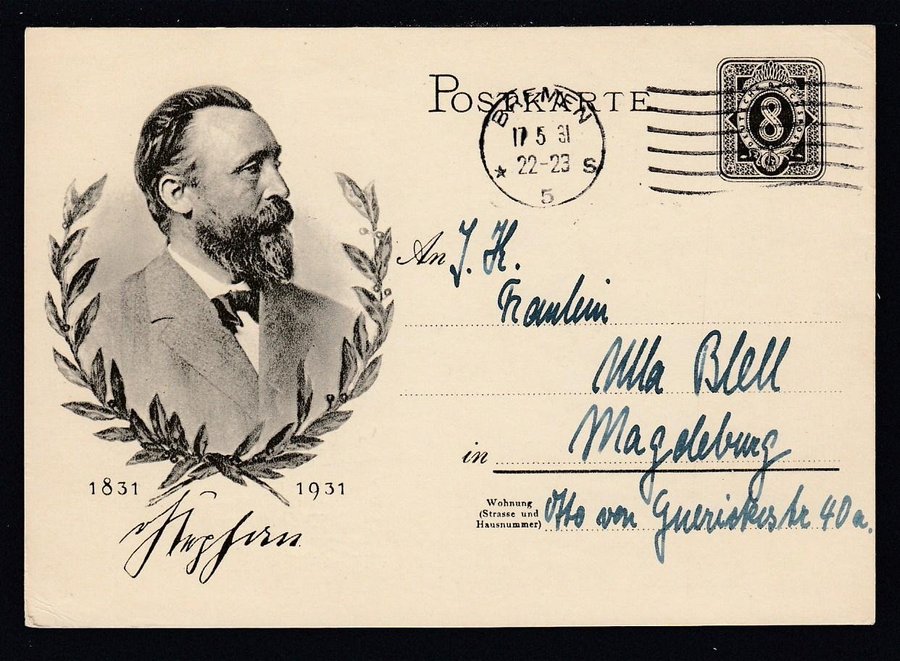 POSTKARTE
8
BREMEN
17 5 31
22-23 S
5
An J. H.
Fräulein
Ulla Blell
in Magdeburg
Wohnung
(Strasse und
Hausnummer)
Otto von Guerickestr. 40a.
1831 1931
Stephan